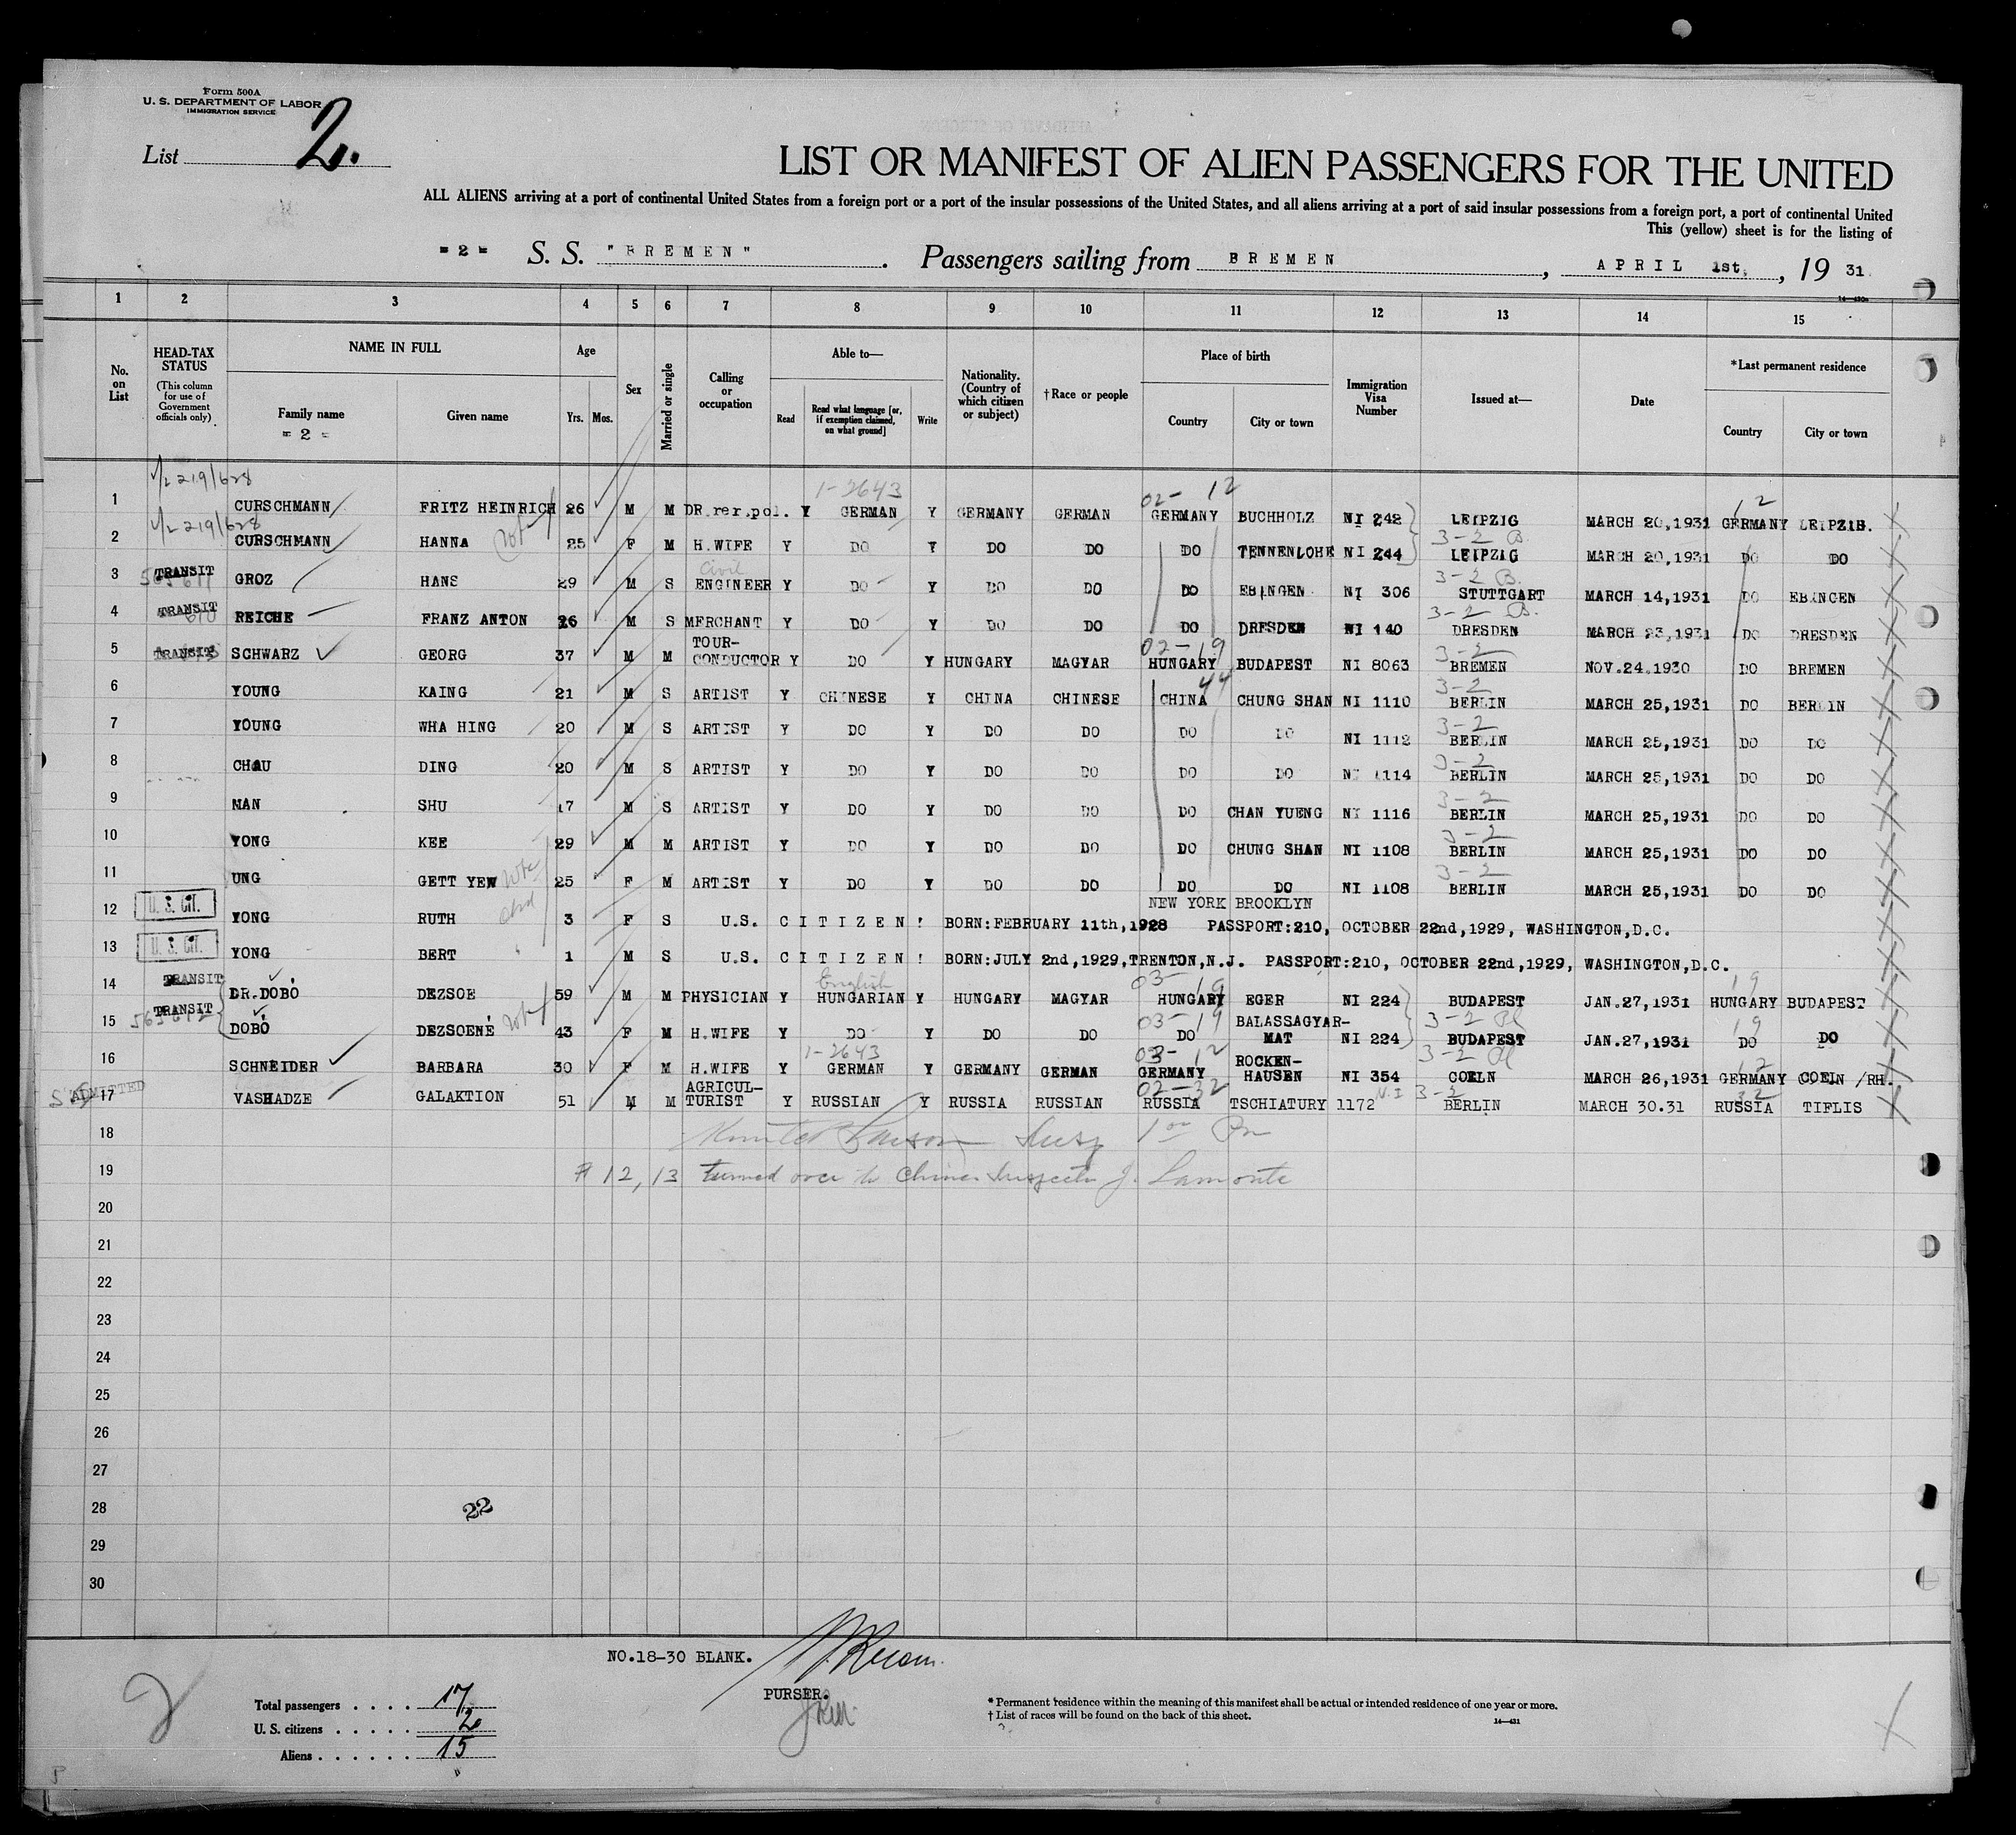 Form 500A
U. S. DEPARTMENT OF LABOR
IMMIGRATION SERVICE
List 2.
LIST OR MANIFEST OF ALIEN PASSENGERS FOR THE UNITED
ALL ALIENS arriving at a port of continental United States from a foreign port or a port of the insular possessions of the United States, and all aliens arriving at a port of said insular possessions from a foreign port, a port of continental United
This (yellow) sheet is for the listing of
= 2 = S. S. "BREMEN". Passengers sailing from BREMEN, APRIL 1st, 19 31
14—430a
1 2 3 4 5 6 7 8 9 10 11 12 13 14 15
No. on List
HEAD-TAX STATUS (This column for use of Government officials only)
NAME IN FULL
Family name
= 2 =
Given name
Age
Yrs. Mos.
Sex
Married or single
Calling or occupation
Able to—
Read
Read what language [or, if exemption claimed, on what ground]
Write
Nationality. (Country of which citizen or subject)
†Race or people
Place of birth
Country
City or town
Immigration Visa Number
Issued at—
Date
*Last permanent residence
Country
City or town
219/628 1-2643 02- 12 12
1 CURSCHMANN FRITZ HEINRICH 26 M M DR.rer.pol. Y GERMAN Y GERMANY GERMAN GERMANY BUCHHOLZ NI 242 LEIPZIG MARCH 20,1931 GERMANY LEIPZIG.
219/628 3-2 B.
2 CURSCHMANN HANNA 25 F M H.WIFE Y DO Y DO DO DO TENNENLOHE NI 244 LEIPZIG MARCH 20,1931 DO DO
TRANSIT Civil 3-2 B.
3 GROZ HANS 29 M S ENGINEER Y DO Y DO DO DO EBINGEN NI 306 STUTTGART MARCH 14,1931 DO EBINGEN
TRANSIT 610 3-2 B.
4 REICHE FRANZ ANTON 26 M S MERCHANT Y DO Y DO DO DO DRESDEN NI 140 DRESDEN MARCH 23,1931 DO DRESDEN
TRANSIT TOUR- 02-19 3-2
5 SCHWARZ GEORG 37 M M CONDUCTOR Y DO Y HUNGARY MAGYAR HUNGARY BUDAPEST NI 8063 BREMEN NOV.24.1930 DO BREMEN
44 3-2
6 YOUNG KAING 21 M S ARTIST Y CHINESE Y CHINA CHINESE CHINA CHUNG SHAN NI 1110 BERLIN MARCH 25,1931 DO BERLIN
3-2
7 YOUNG WHA HING 20 M S ARTIST Y DO Y DO DO DO DO NI 1112 BERLIN MARCH 25,1931 DO DO
3-2
8 CHAU DING 20 M S ARTIST Y DO Y DO DO DO DO NI 1114 BERLIN MARCH 25,1931 DO DO
3-2
9 MAN SHU 17 M S ARTIST Y DO Y DO DO DO CHAN YUENG NI 1116 BERLIN MARCH 25,1931 DO DO
3-2
10 YONG KEE 29 M M ARTIST Y DO Y DO DO DO CHUNG SHAN NI 1108 BERLIN MARCH 25,1931 DO DO
3-2
11 UNG GETT YEW 25 F M ARTIST Y DO Y DO DO DO DO NI 1108 BERLIN MARCH 25,1931 DO DO
U. S. Cit. NEW YORK BROOKLYN
12 YONG RUTH 3 F S U.S. CITIZEN! BORN:FEBRUARY 11th,1928 PASSPORT:210, OCTOBER 22nd,1929, WASHINGTON,D.C.
U. S. Cit.
13 YONG BERT 1 M S U.S. CITIZEN! BORN:JULY 2nd,1929,TRENTON,N.J. PASSPORT:210, OCTOBER 22nd,1929, WASHINGTON,D.C.
TRANSIT English 03- 19 19
14 DR.DOBÓ DEZSOE 59 M M PHYSICIAN Y HUNGARIAN Y HUNGARY MAGYAR HUNGARY EGER NI 224 BUDAPEST JAN.27,1931 HUNGARY BUDAPEST
TRANSIT 03-19 BALASSAGYAR- 3-2 19
15 DOBÓ DEZSOENÉ 43 F M H.WIFE Y DO Y DO DO DO MAT NI 224 BUDAPEST JAN.27,1931 DO DO
1-2643 03- 12 ROCKEN- 3-2 12
16 SCHNEIDER BARBARA 30 F M H.WIFE Y GERMAN Y GERMANY GERMAN GERMANY HAUSEN NI 354 COELN MARCH 26,1931 GERMANY COELN /RH.
ADMITTED AGRICUL- 02-32 N.I 3-2 32
17 VASHADZE GALAKTION 51 M M TURIST Y RUSSIAN Y RUSSIA RUSSIAN RUSSIA TSCHIATURY 1172 BERLIN MARCH 30.31 RUSSIA TIFLIS
18
19 # 12, 13 turned over to Chinese Inspector J. Lamonte
20
21
22
23
24
25
26
27
28 22
29
30
NO.18-30 BLANK.
PURSER.
2
Total passengers . . . . 17
U. S. citizens . . . . . 2
Aliens . . . . . . 15
* Permanent residence within the meaning of this manifest shall be actual or intended residence of one year or more.
† List of races will be found on the back of this sheet.
14—431